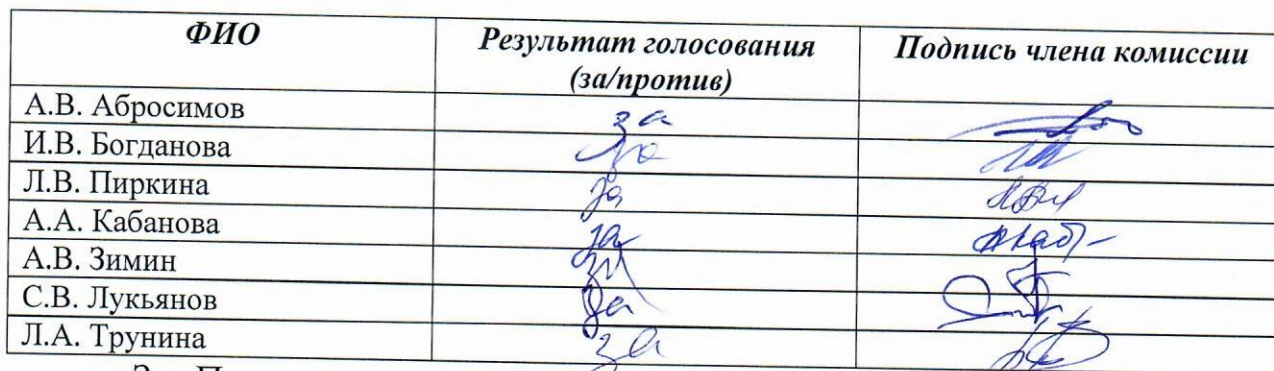 ФИО Результат голосования (за/против) Подпись члена комиссии
А.В. Абросимов за
И.В. Богданова за
Л.В. Пиркина за
А.А. Кабанова за
А.В. Зимин за
С.В. Лукьянов за
Л.А. Трунина за